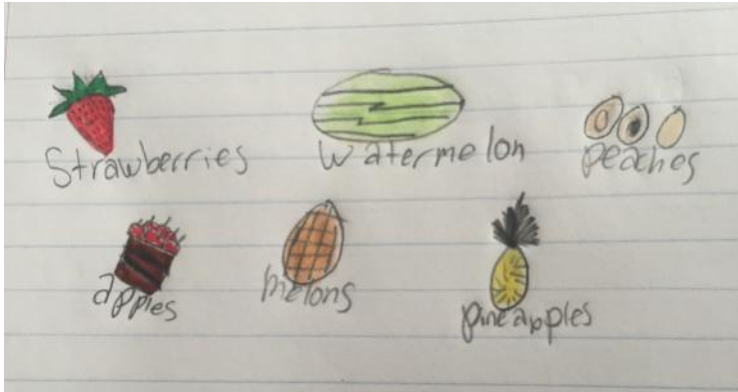 Strawberries
watermelon
peaches
apples
melons
pineapples